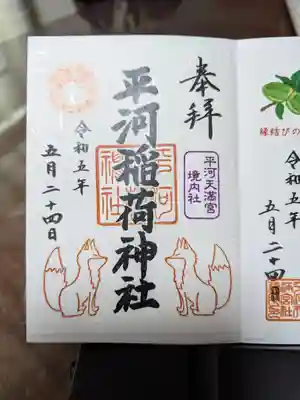 奉拝
平河天満宮
境内社
平河稲荷神社
令和五年
五月二十四日
縁結びの
令和五年
五月二十四